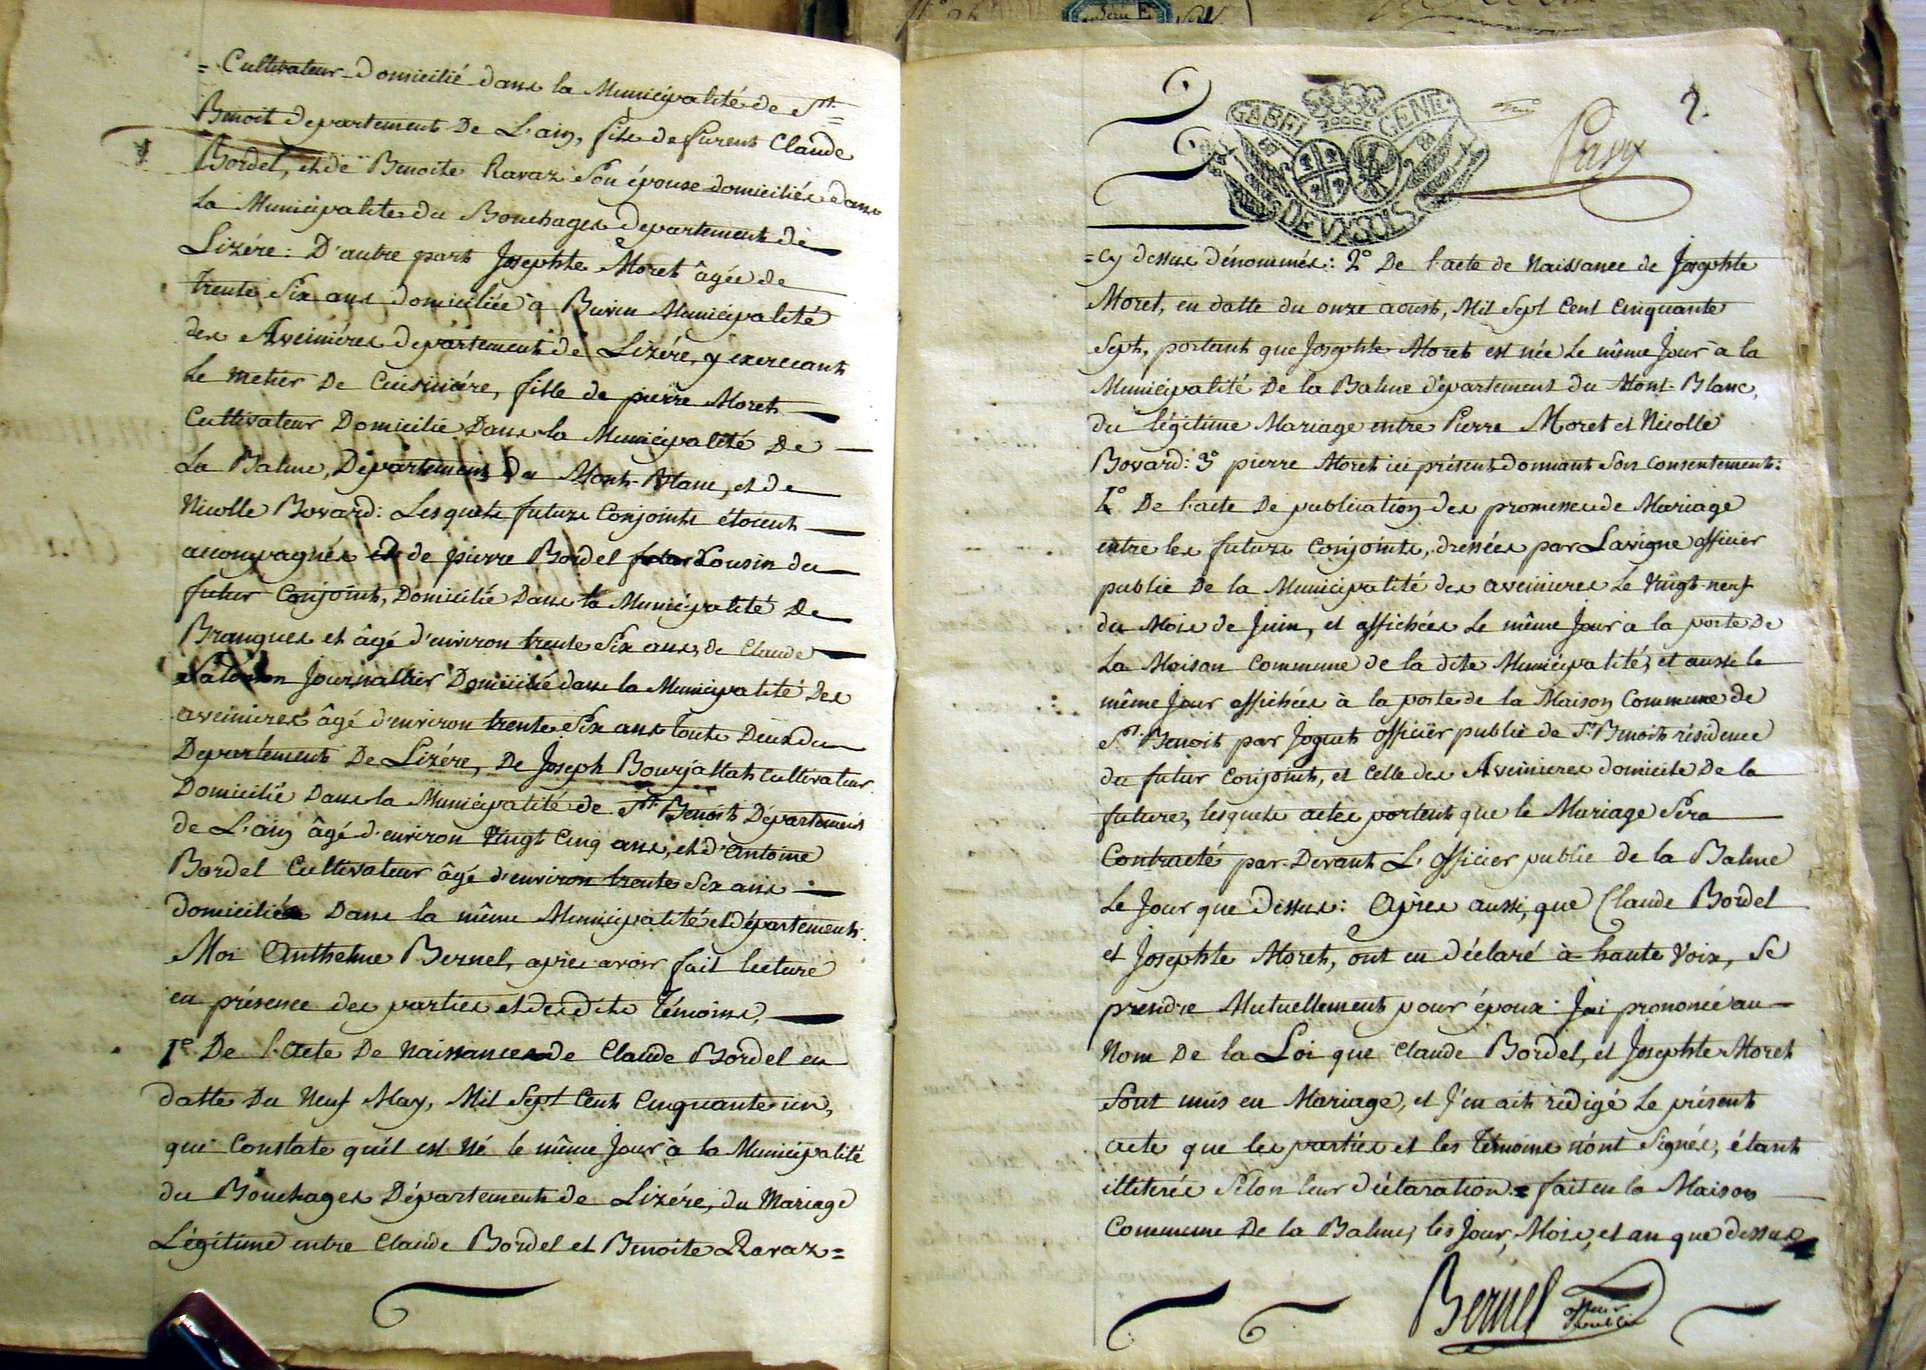 = Cultivateur domicilié dans la Municipalité de St=
Benoit departement De L'ain, fils de furent Claude
Bordel, et de Benoite Ravaz Son épouse domiciliés dans
La Municipalite du Bouchages departement de
Lizére: D'autre part Josephte Moret âgée de
trente Six ans domiciliée à Buvin Municipalité
des Aveinières departement de Lizére, y exercant
Le metier De Cuisiniére, fille de pierre Moret
Cultivateur Domicilié Dans la Municipalité De
La Balme, Département Du Mont-Blanc, et de
Nicolle Bovard: Lesquels futurs Conjoints étoient
acompagnés de pierre Bordel Cousin du
futur Conjoint, Domicilié Dans la Municipalité De
Brangues et âgé d'environ trente Six ans, de Claude
Journallier Domicilié dans la Municipalité Des
aveinieres âgé d'environ trente Six ans touts Deux du
Departement De Lizére, De Joseph Bourjallat Cultivateur
Domicilié Dans la Municipalité de St. Benoit Département
de L'ain âgé d'environ Vingt Cinq ans, et d'Antoine
Bordel Cultivateur âgé d'environ trente Six ans
domiciliés Dans la même Municipalité et département.
Moi Anthelme Bernel, apres avoir fait lecture
en présence des parties et desdits Témoins,
1° De l'Acte De Naissance de Claude Bordel en
datte Du Neuf May, Mil Sept Cent Cinquante un,
qui Constate qu'il est Né le même Jour à la Municipalité
du Bouchages Département de Lizére, du Mariage
Légitime entre Claude Bordel et Benoite Ravaz=
2.
GABEL GENE.
DEUX SOLS
= Cy dessus dénommés: 2° De l'acte de Naissance de Josephte
Moret, en datte du onze aoust, Mil Sept Cent Cinquante
Sept, portant que Josephte Moret est née Le même Jour à la
Municipalité De la Balme département du Mont-Blanc,
du légitime Mariage entre Pierre Moret et Nicolle
Bovard: 3° pierre Moret ici présent donnant Son Consentement:
De l'acte De publication des promesses de Mariage
entre les futurs Conjoints, dressées par Lavigne officier
public De la Municipalité des aveinieres Le Vingt-neuf
du Mois de Juin, et affichées Le même Jour à la porte De
La Maison Commune de la dite Municipalité, et aussi le
même Jour affichées à la porte de la Maison Commune de
St. Benoit par Joguet officier public de St. Benoit résidence
du futur Conjoint, et Celle des Aveinieres domicile De la
future, lesquels actes portent que le Mariage Sera
Contracté par-Devant L'officier public de la Balme
Le Jour que Dessus: Apres aussi, que Claude Bordel
et Josephte Moret, ont eu déclaré à haute Voix, Se
prendre Mutuellement pour époux: J'ai prononcé au
Nom De la Loi que Claude Bordel, et Josephte Moret
Sont unis en Mariage, et J'en ait rédigé Le présent
acte que les parties et les Témoins n'ont Signés, étant
illiterés Selon leur déclaration = fait en la Maison
Commune De la Balme, les Jour, Mois, et an que dessus
Bernel officier public